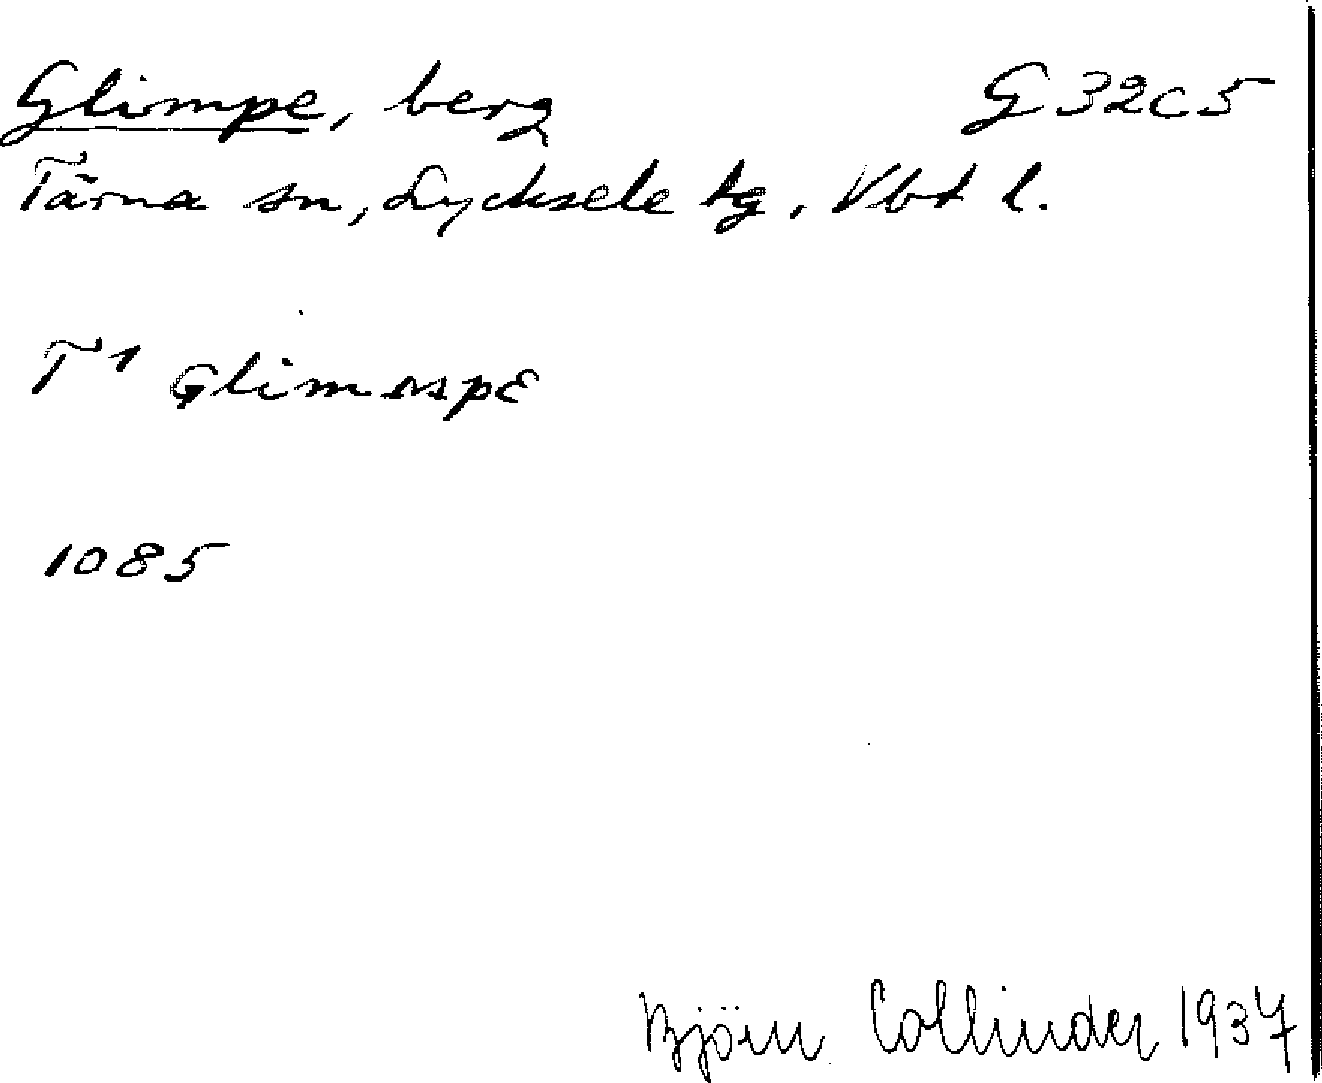 Glimpe, berg G 32 c 5
Tärna sn, Lycksele tg, Vbt l.
T¹
1085
Björn Collinder 1937